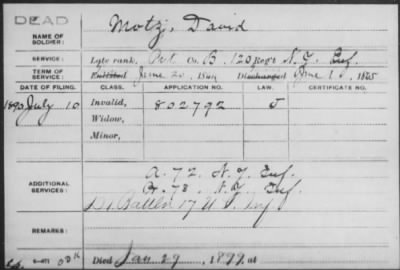 DEAD
NAME OF SOLDIER: Motzj, David
SERVICE: Late rank, Pvt. Co. B, 120 Reg't N.Y. Inf.
TERM OF SERVICE: Enlisted June 20, 1864 Discharged June 15, 1865
DATE OF FILING. CLASS. APPLICATION NO. LAW. CERTIFICATE NO.
1890 July 10 Invalid, 802792 J
Widow,
Minor,
ADDITIONAL SERVICES: A. 72. N.Y. Inf.
H. 73. N.Y. Inf.
17 U.S. Inf
REMARKS:
Died Jan 29, 1899, at